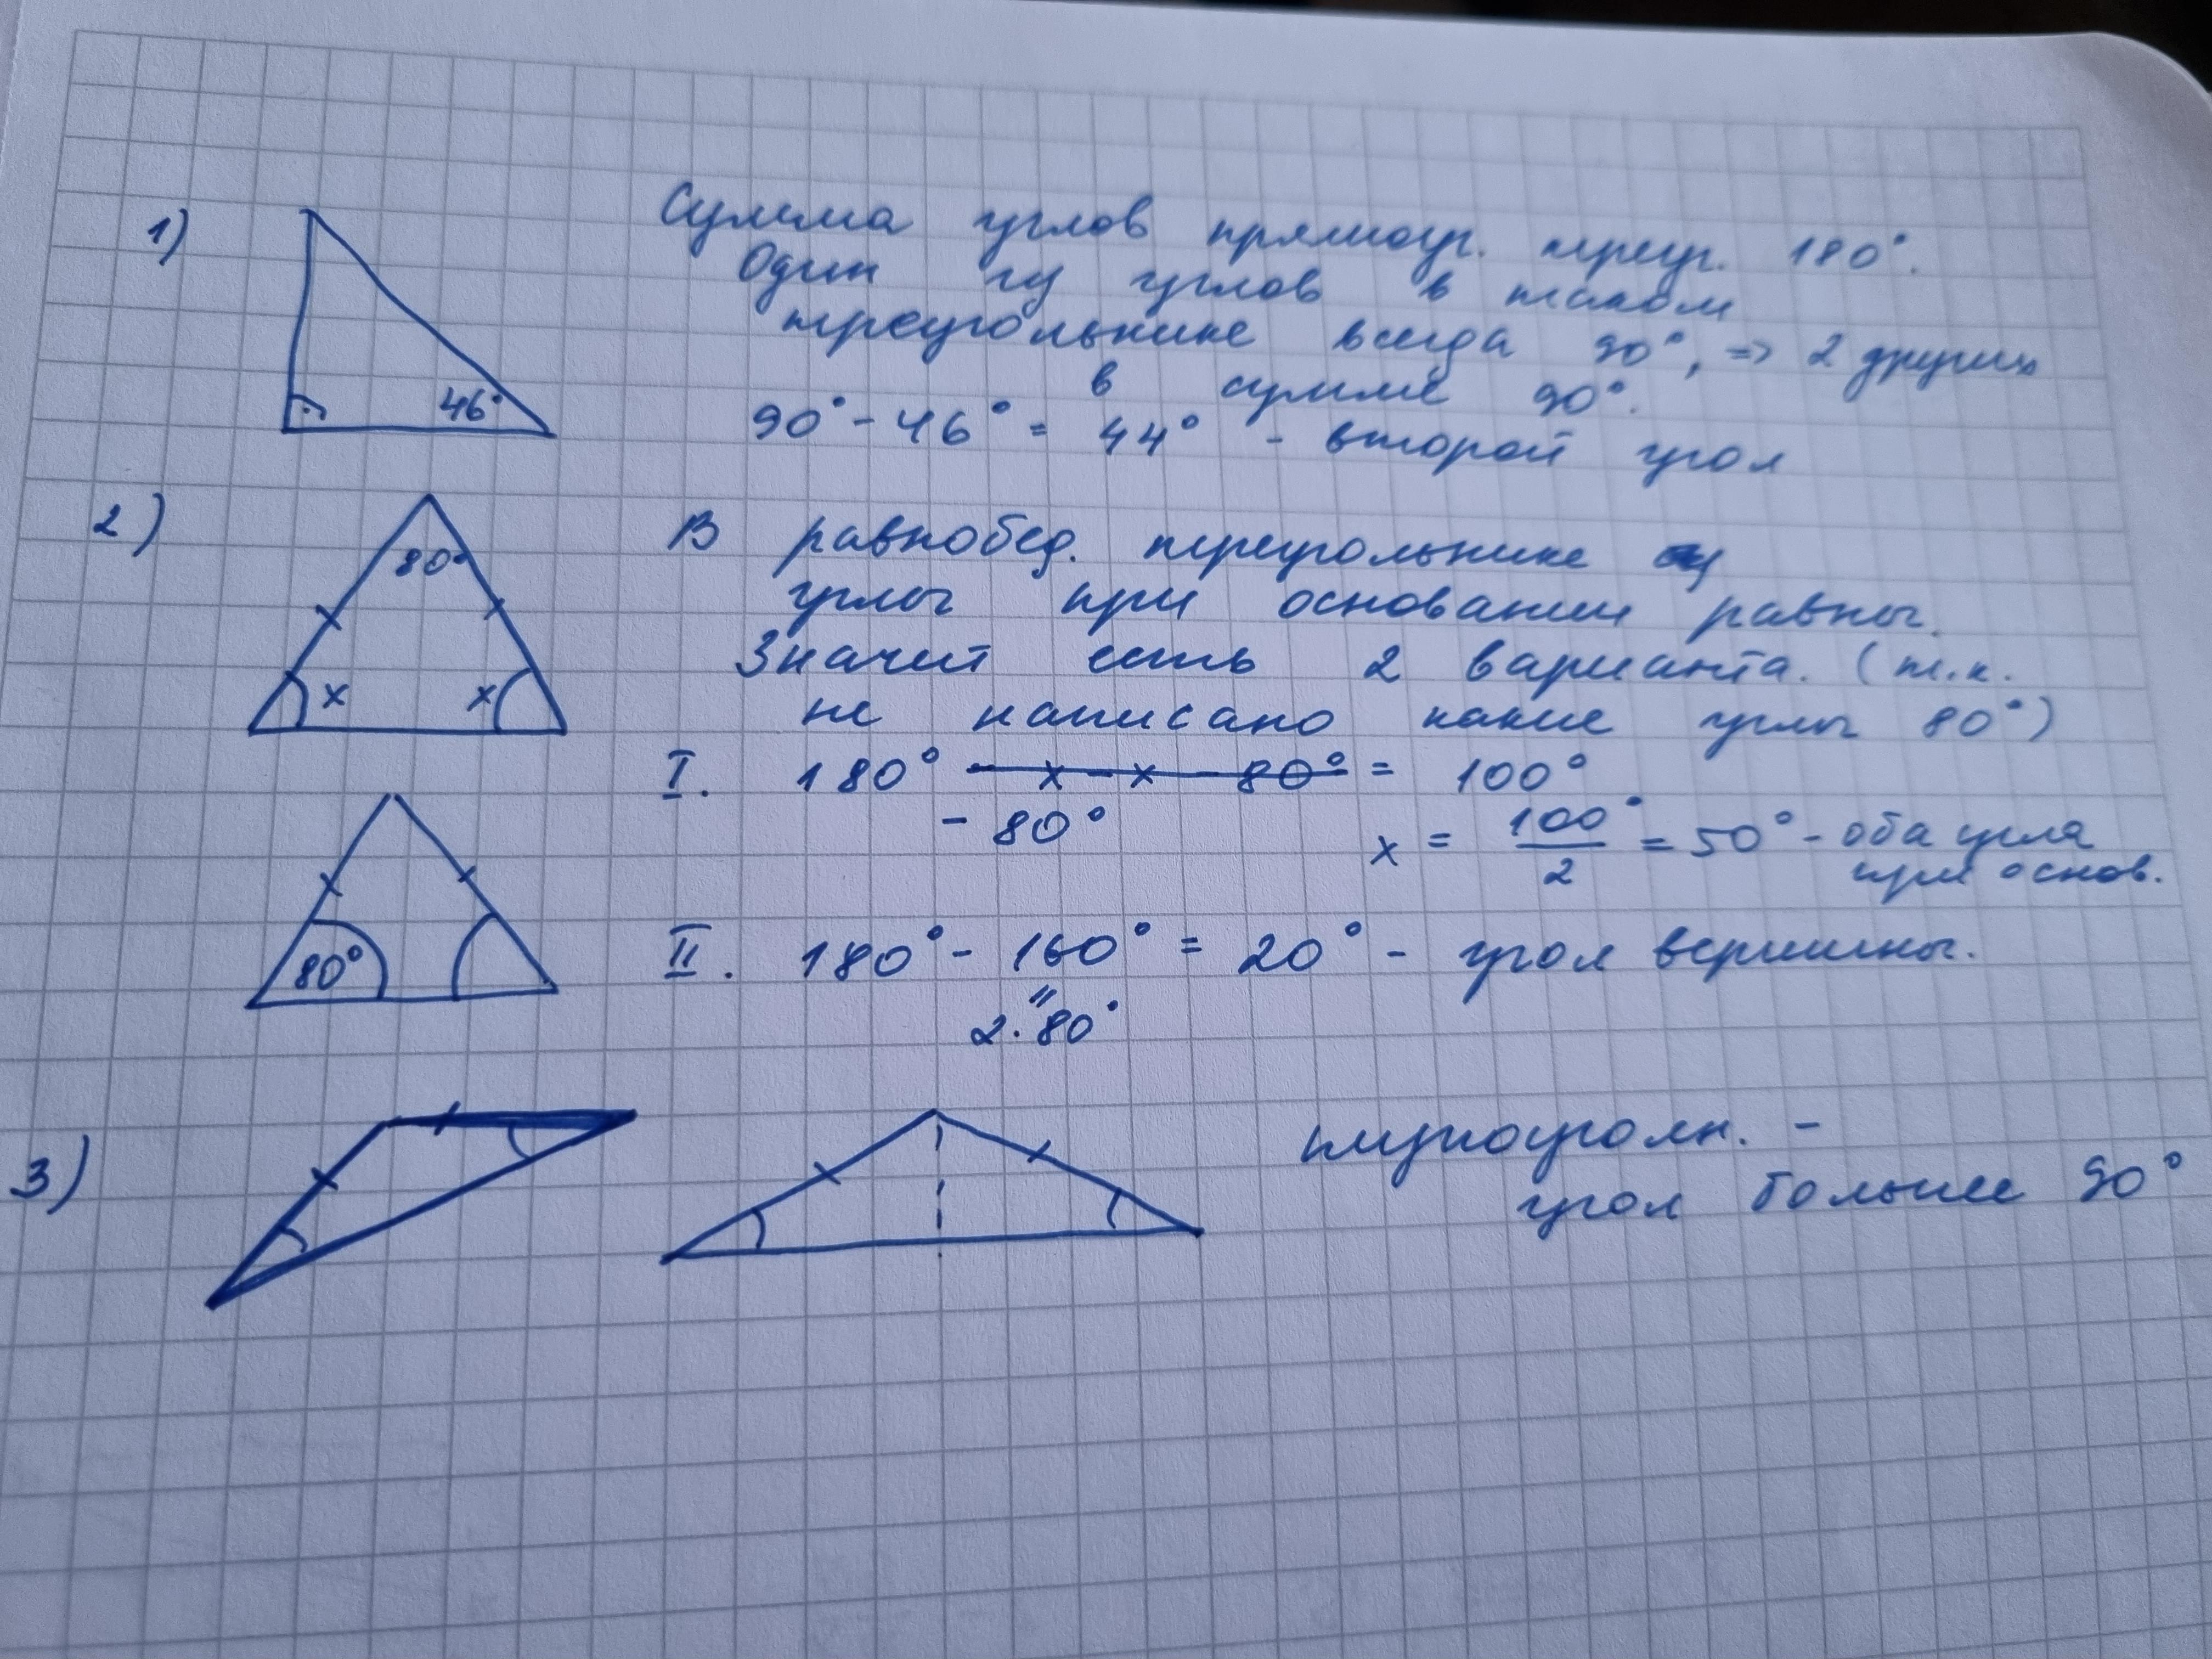 1)
46°
Сумма углов прямоуг. треуг. 180°.
Один из углов в таком
треугольнике всегда 90°, => 2 других
в сумме 90°.
90° - 46° = 44° - второй угол
2)
80°
x x
В равнобед. треугольнике
углы при основании равны.
Значит есть 2 варианта. (т.к.
не написано какие углы 80°)
I. 180° - x - x - 80° = 100°
- 80°
x = 100°/2 = 50° - оба угла
при основ.
80°
II. 180° - 160° = 20° - угол вершины.
"
2·80°
3)
тупоуголн. -
угол больше 90°